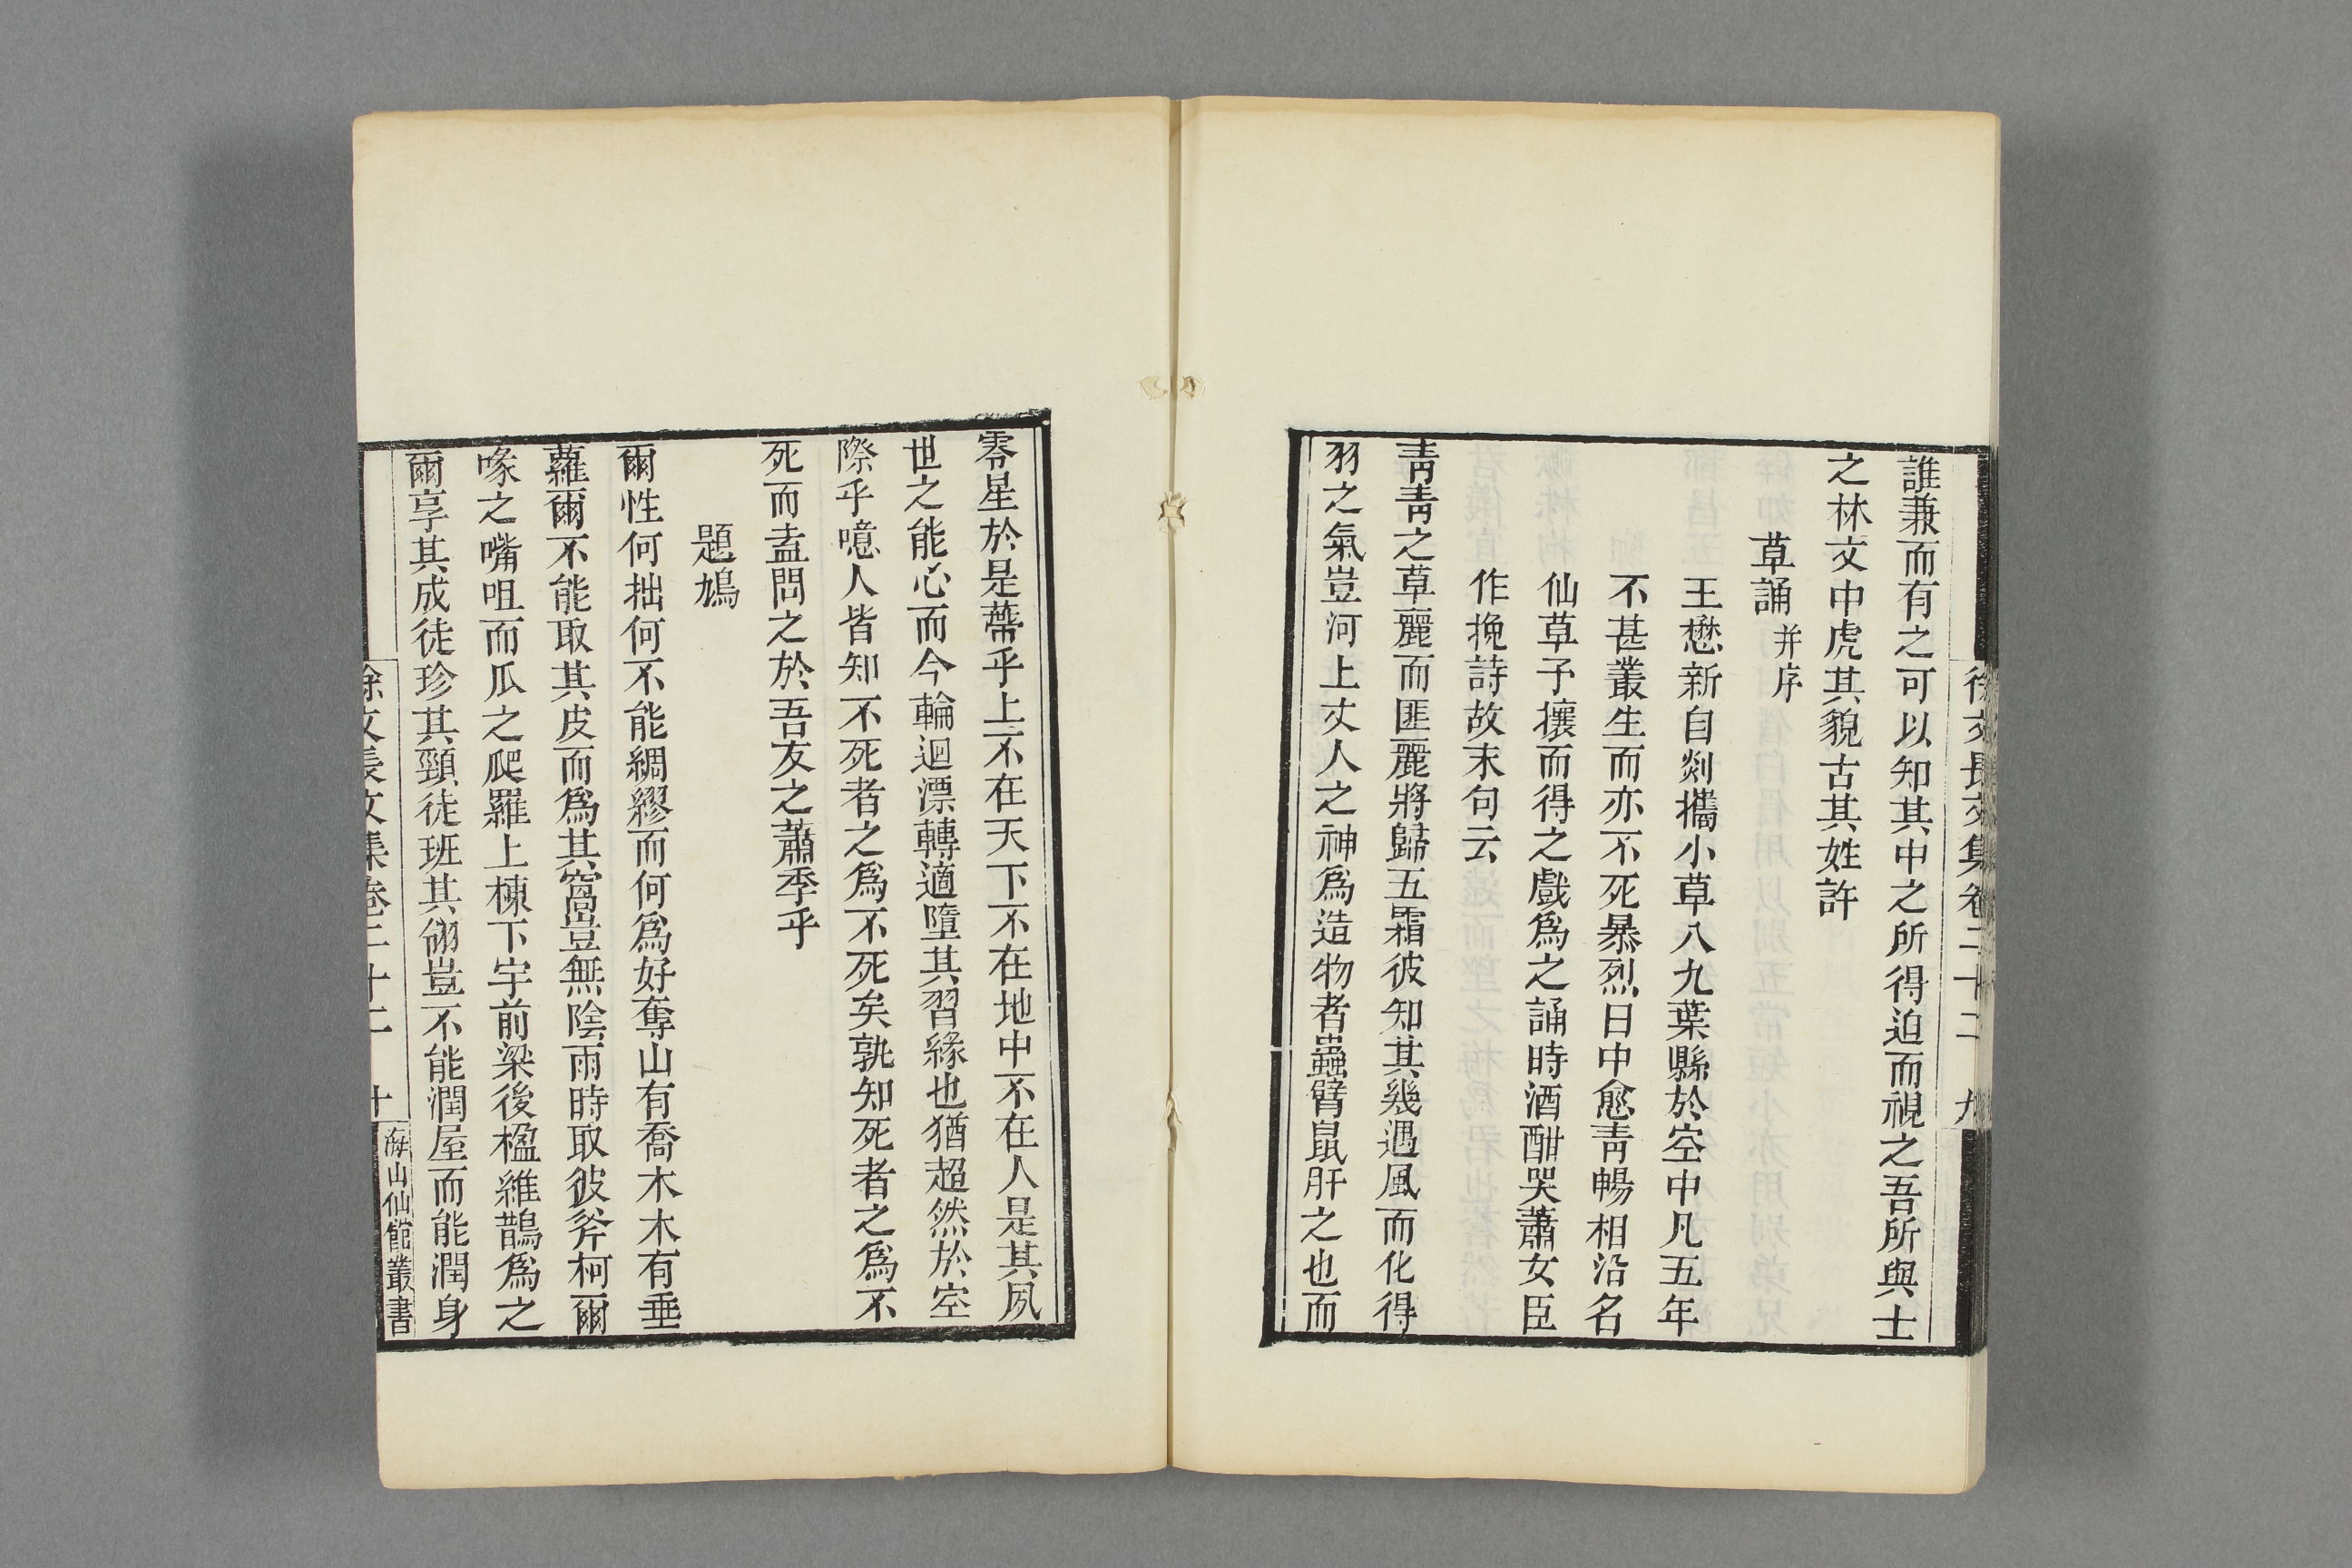 徐文長文集卷二十二 九
誰兼而有之可以知其中之所得迫而視之吾所與士
之林文中虎其貌古其姓許
草誦并序
王懋新自剡攜小草八九葉縣於空中凡五年
不甚叢生而亦不死暴烈日中愈靑暢相沿名
仙草予攘而得之戲爲之誦時酒酣哭蕭女臣
作挽詩故末句云
靑靑之草麗而匪麗將歸五霜彼知其幾遇風而化得
羽之氣豈河上丈人之神爲造物者蟲臂鼠肝之也而
零星於是薺乎上不在天下不在地中不在人是其夙
世之能心而今輪迴漂轉適墮其習緣也猶超然於空
際乎噫人皆知不死者之爲不死矣孰知死者之爲不
死而盍問之於吾友之蕭季乎
題鳩
爾性何拙何不能綢繆而何爲好奪山有喬木木有垂
蘿爾不能取其皮而爲其窩豈無陰雨時取彼斧柯爾
喙之嘴咀而瓜之爬羅上棟下宇前梁後楹維鵲爲之
爾享其成徒珍其頸徒班其翎豈不能潤屋而能潤身
徐文長文集卷二十二 十
海山仙館叢書